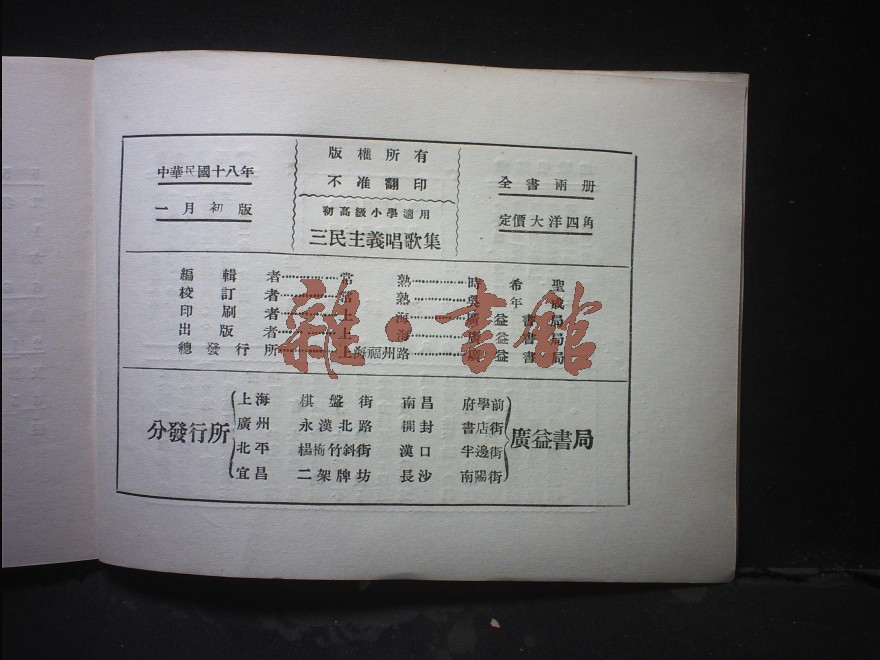 中華民國十八年
一月初版
版權所有
不准翻印
初高級小學適用
三民主義唱歌集
全書兩册
定價大洋四角
編輯者……常熟……時希聖
校訂者……常熟……吳年成
印刷者……上海……廣益書局
出版者……上海……廣益書局
總發行所……上海福州路……廣益書局
分發行所
上海 棋盤街 南昌 府學前
廣州 永漢北路 開封 書店街
北平 楊梅竹斜街 漢口 半邊街
宜昌 二架牌坊 長沙 南陽街
廣益書局
雜·書館